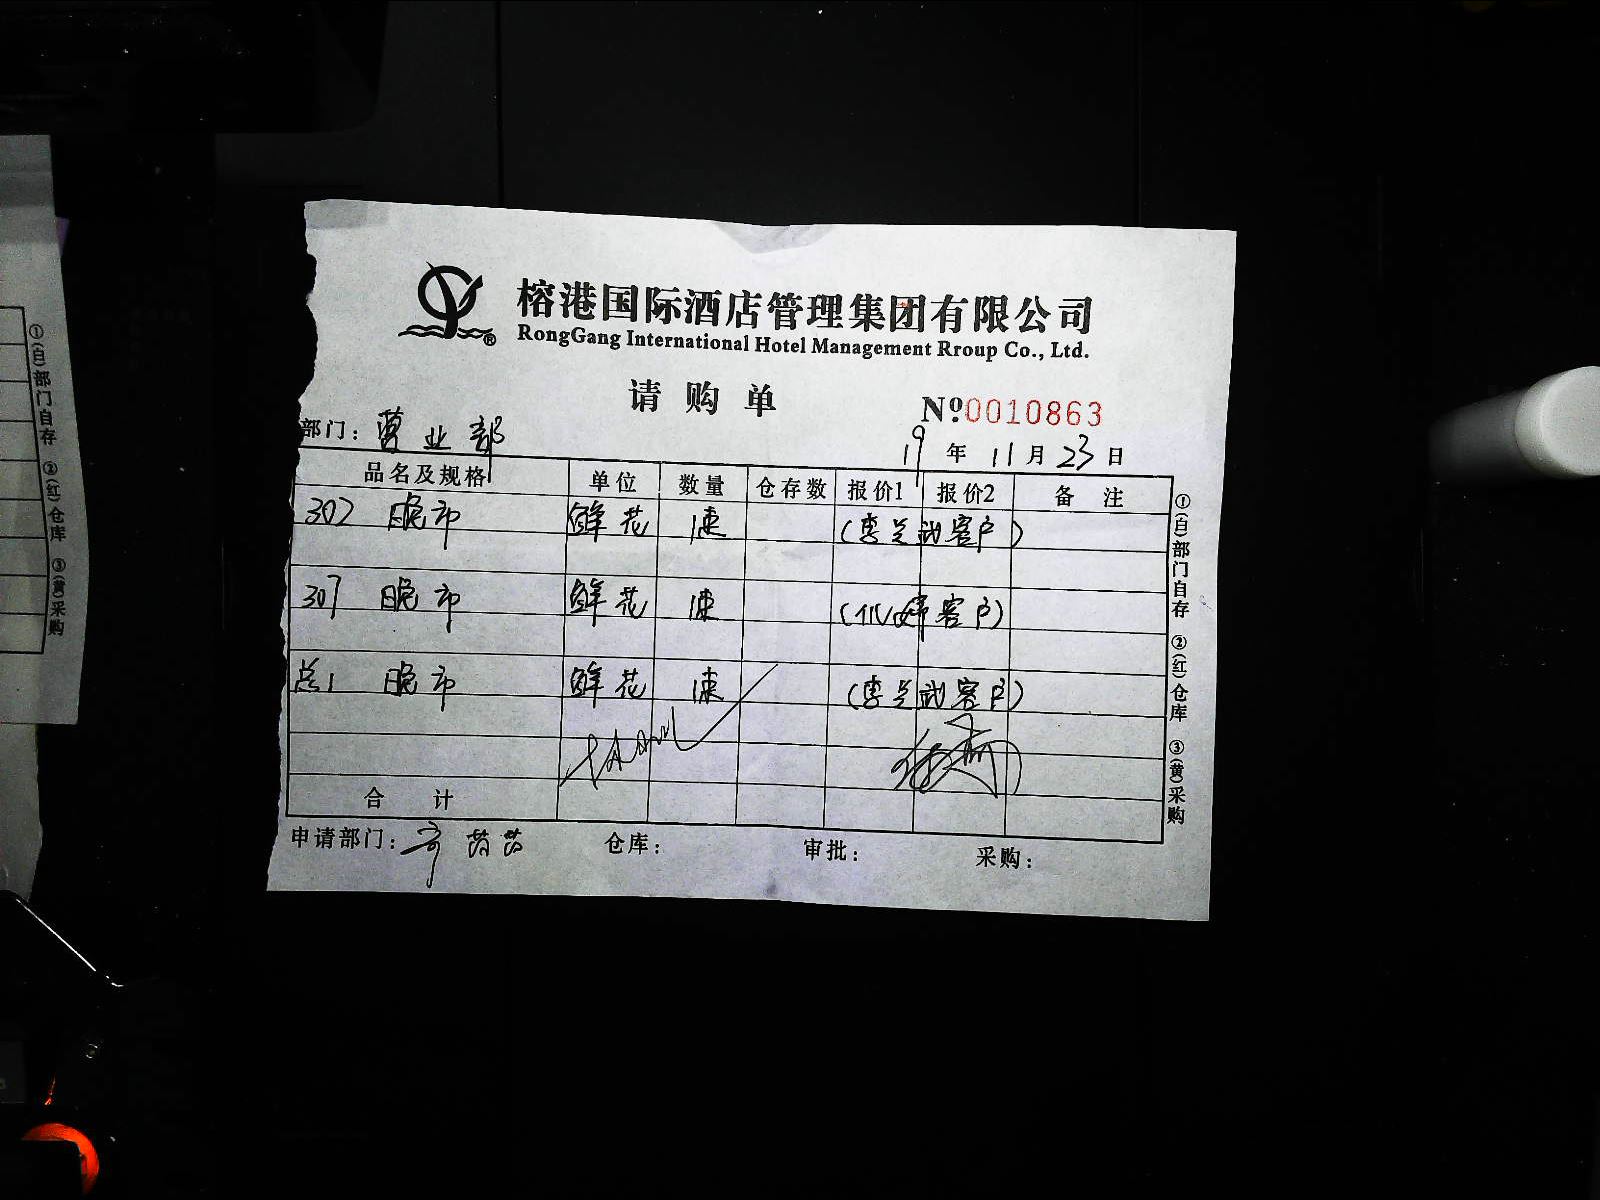 榕港国际酒店管理集团有限公司
RongGang International Hotel Management Rroup Co., Ltd.
请购单
№0010863
部门：营业部
19年11月23日
品名及规格 单位 数量 仓存数 报价1 报价2 备注
302 晚市 鲜花 1束 (李兰武客户)
307 晚市 鲜花 1束 (客户)
总1 晚市 鲜花 1束 (李兰武客户)
合计
申请部门： 仓库： 审批： 采购：
①(白)部门自存 ②(红)仓库 ③(黄)采购
①(白)部门自存 ②(红)仓库 ③(黄)采购